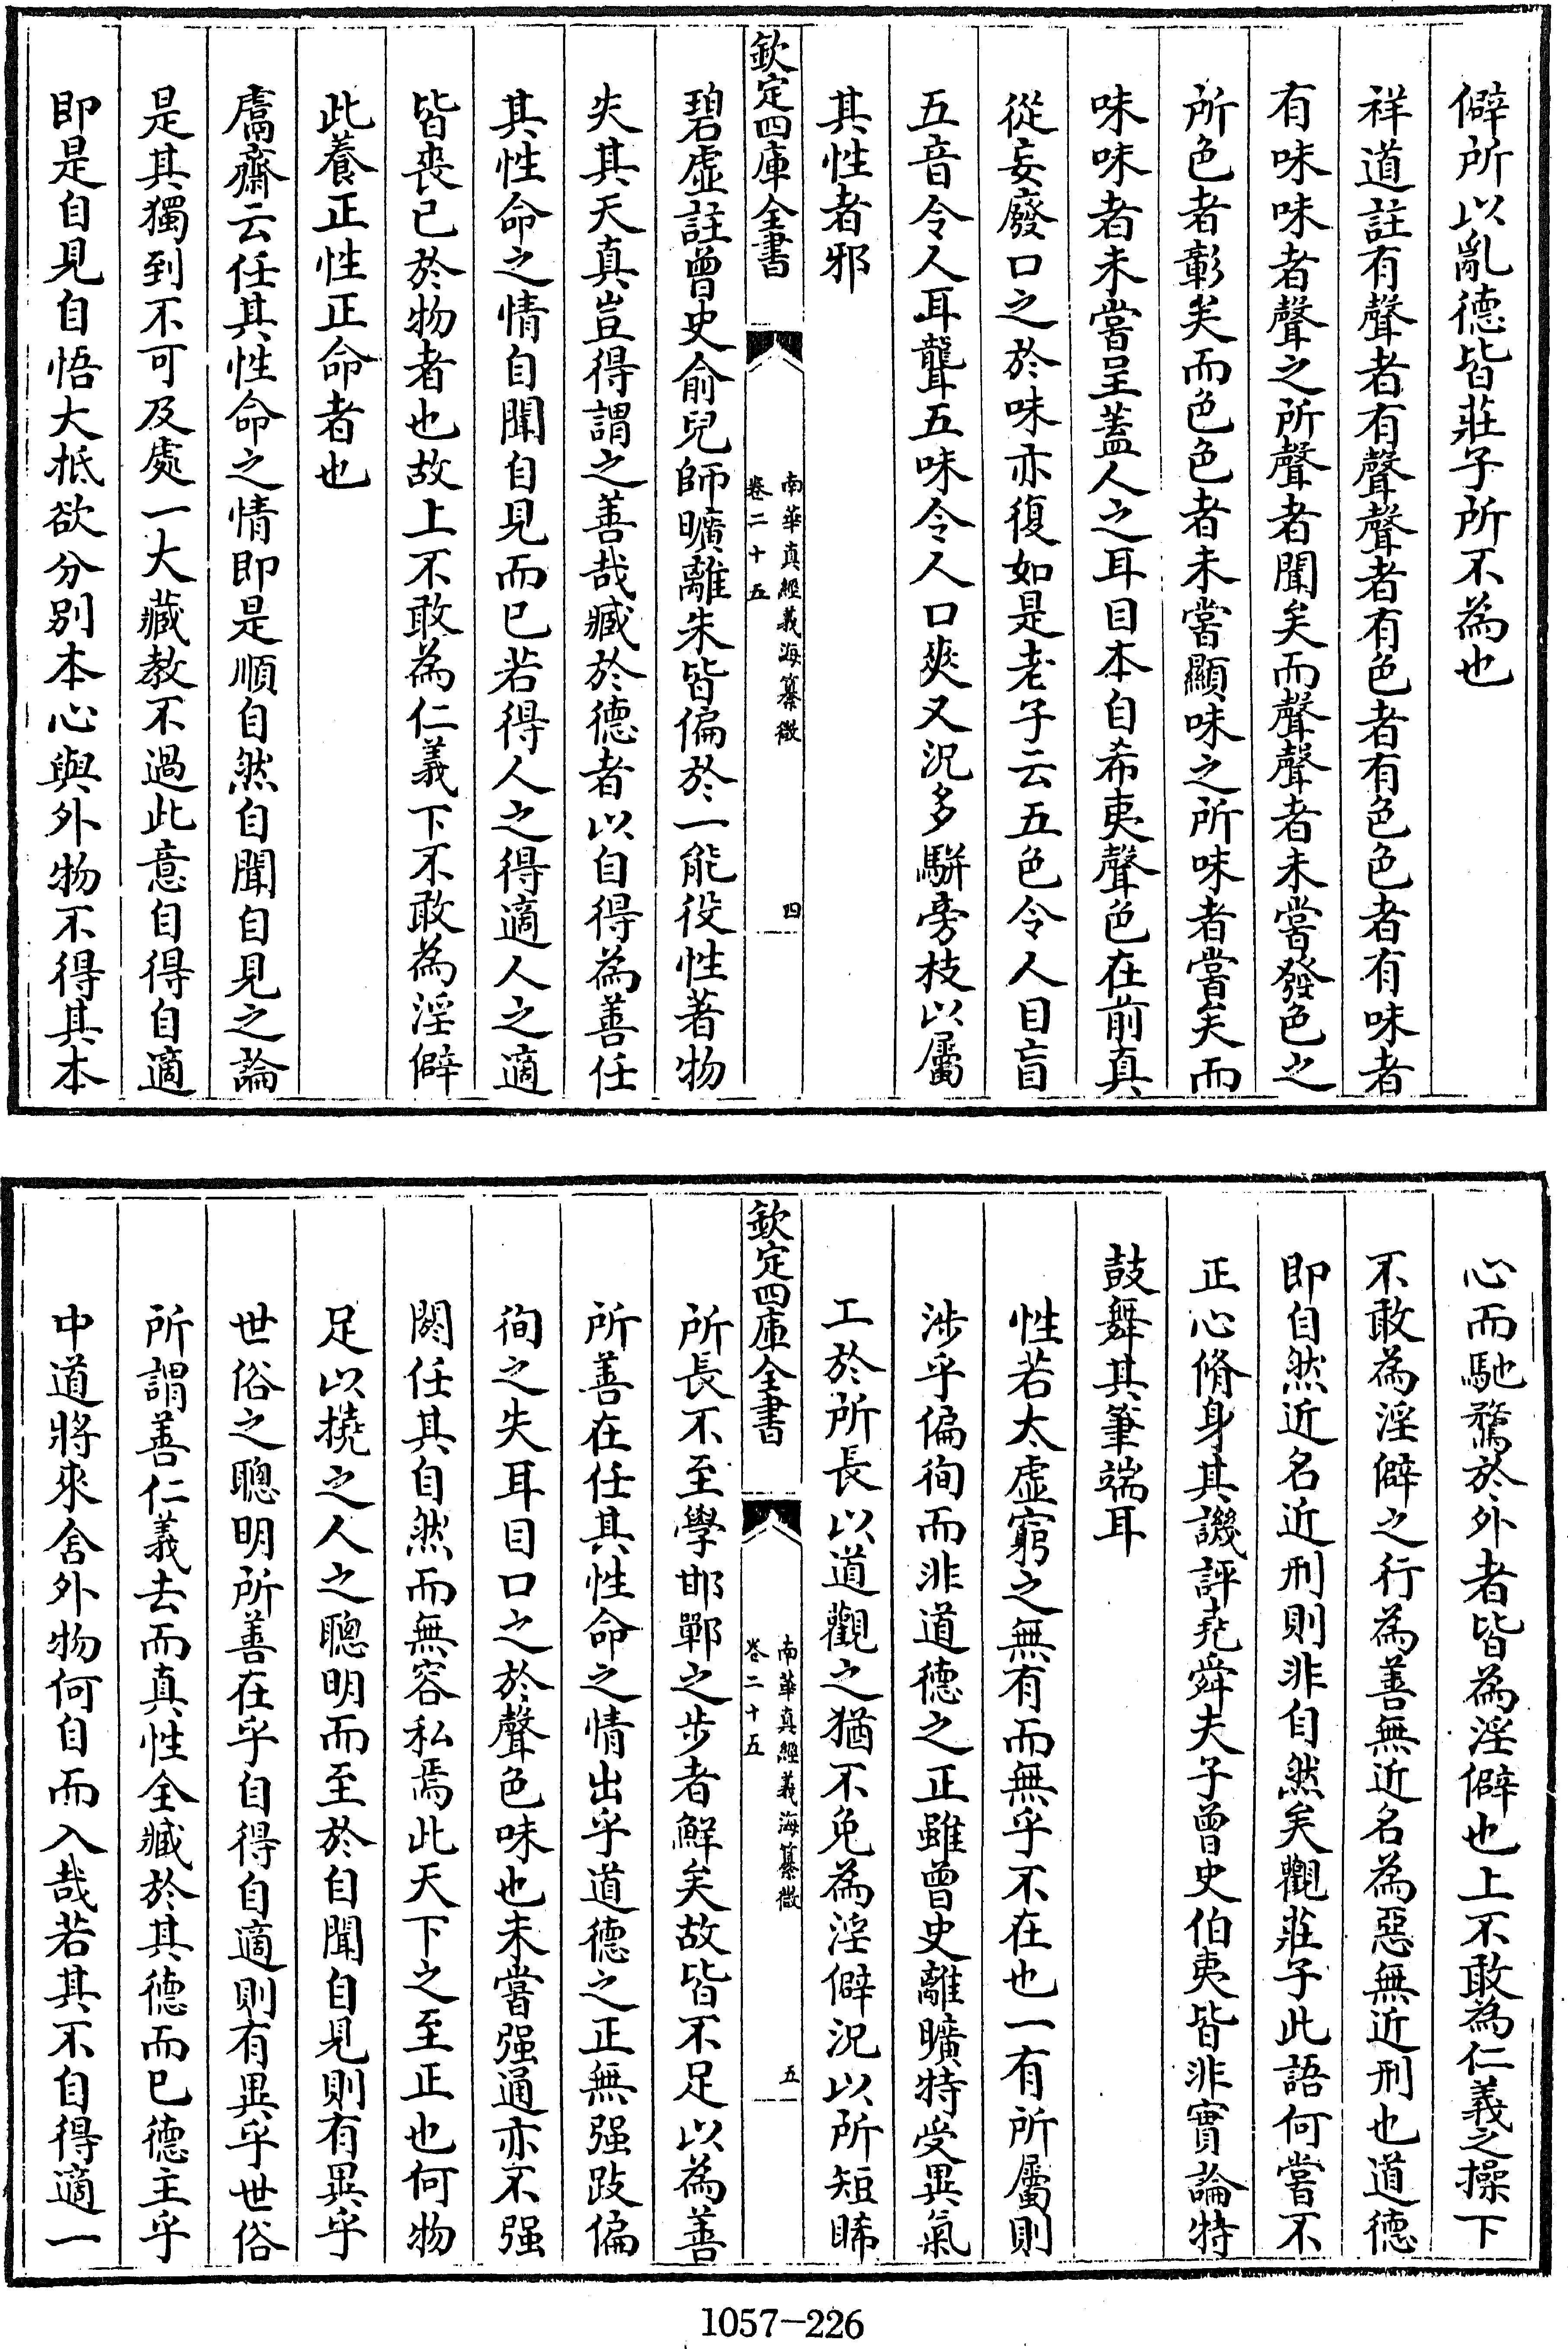 僻所以亂德皆莊子所不為也
祥道註有聲者有聲聲者有色者有色色者有味者
有味味者聲之所聲者聞矣而聲聲者未嘗發色之
所色者彰矣而色色者未嘗顯味之所味者嘗矣而
味味者未嘗呈蓋人之耳目本自希夷聲色在前真
從妄廢口之於味亦復如是老子云五色令人目盲
五音令人耳聾五味令人口爽又況多駢旁枝以屬
其性者邪
欽定四庫全書
南華真經義海纂微
卷二十五
四
碧虛註曾史俞兒師曠離朱皆偏於一能役性著物
失其天真豈得謂之善哉臧於德者以自得為善任
其性命之情自聞自見而已若得人之得適人之適
皆喪已於物者也故上不敢為仁義下不敢為淫僻
此養正性正命者也
鬳齋云任其性命之情即是順自然自聞自見之論
是其獨到不可及處一大藏教不過此意自得自適
即是自見自悟大抵欲分別本心與外物不得其本
心而馳騖於外者皆為淫僻也上不敢為仁義之操下
不敢為淫僻之行為善無近名為惡無近刑也道德
即自然近名近刑則非自然矣觀莊子此語何嘗不
正心脩身其譏評堯舜夫子曾史伯夷皆非實論特
鼓舞其筆端耳
性若太虛窮之無有而無乎不在也一有所屬則
涉乎偏徇而非道德之正雖曾史離曠特受異氣
工於所長以道觀之猶不免為淫僻況以所短睎
欽定四庫全書
南華真經義海纂微
卷二十五
五
所長不至學邯鄲之步者鮮矣故皆不足以為善
所善在任其性命之情出乎道德之正無强跂偏
徇之失耳目口之於聲色味也未嘗强通亦不强
閼任其自然而無容私焉此天下之至正也何物
足以撓之人之聰明而至於自聞自見則有異乎
世俗之聰明所善在乎自得自適則有異乎世俗
所謂善仁義去而真性全臧於其德而已德主乎
中道將來舍外物何自而入哉若其不自得適一
1057-226